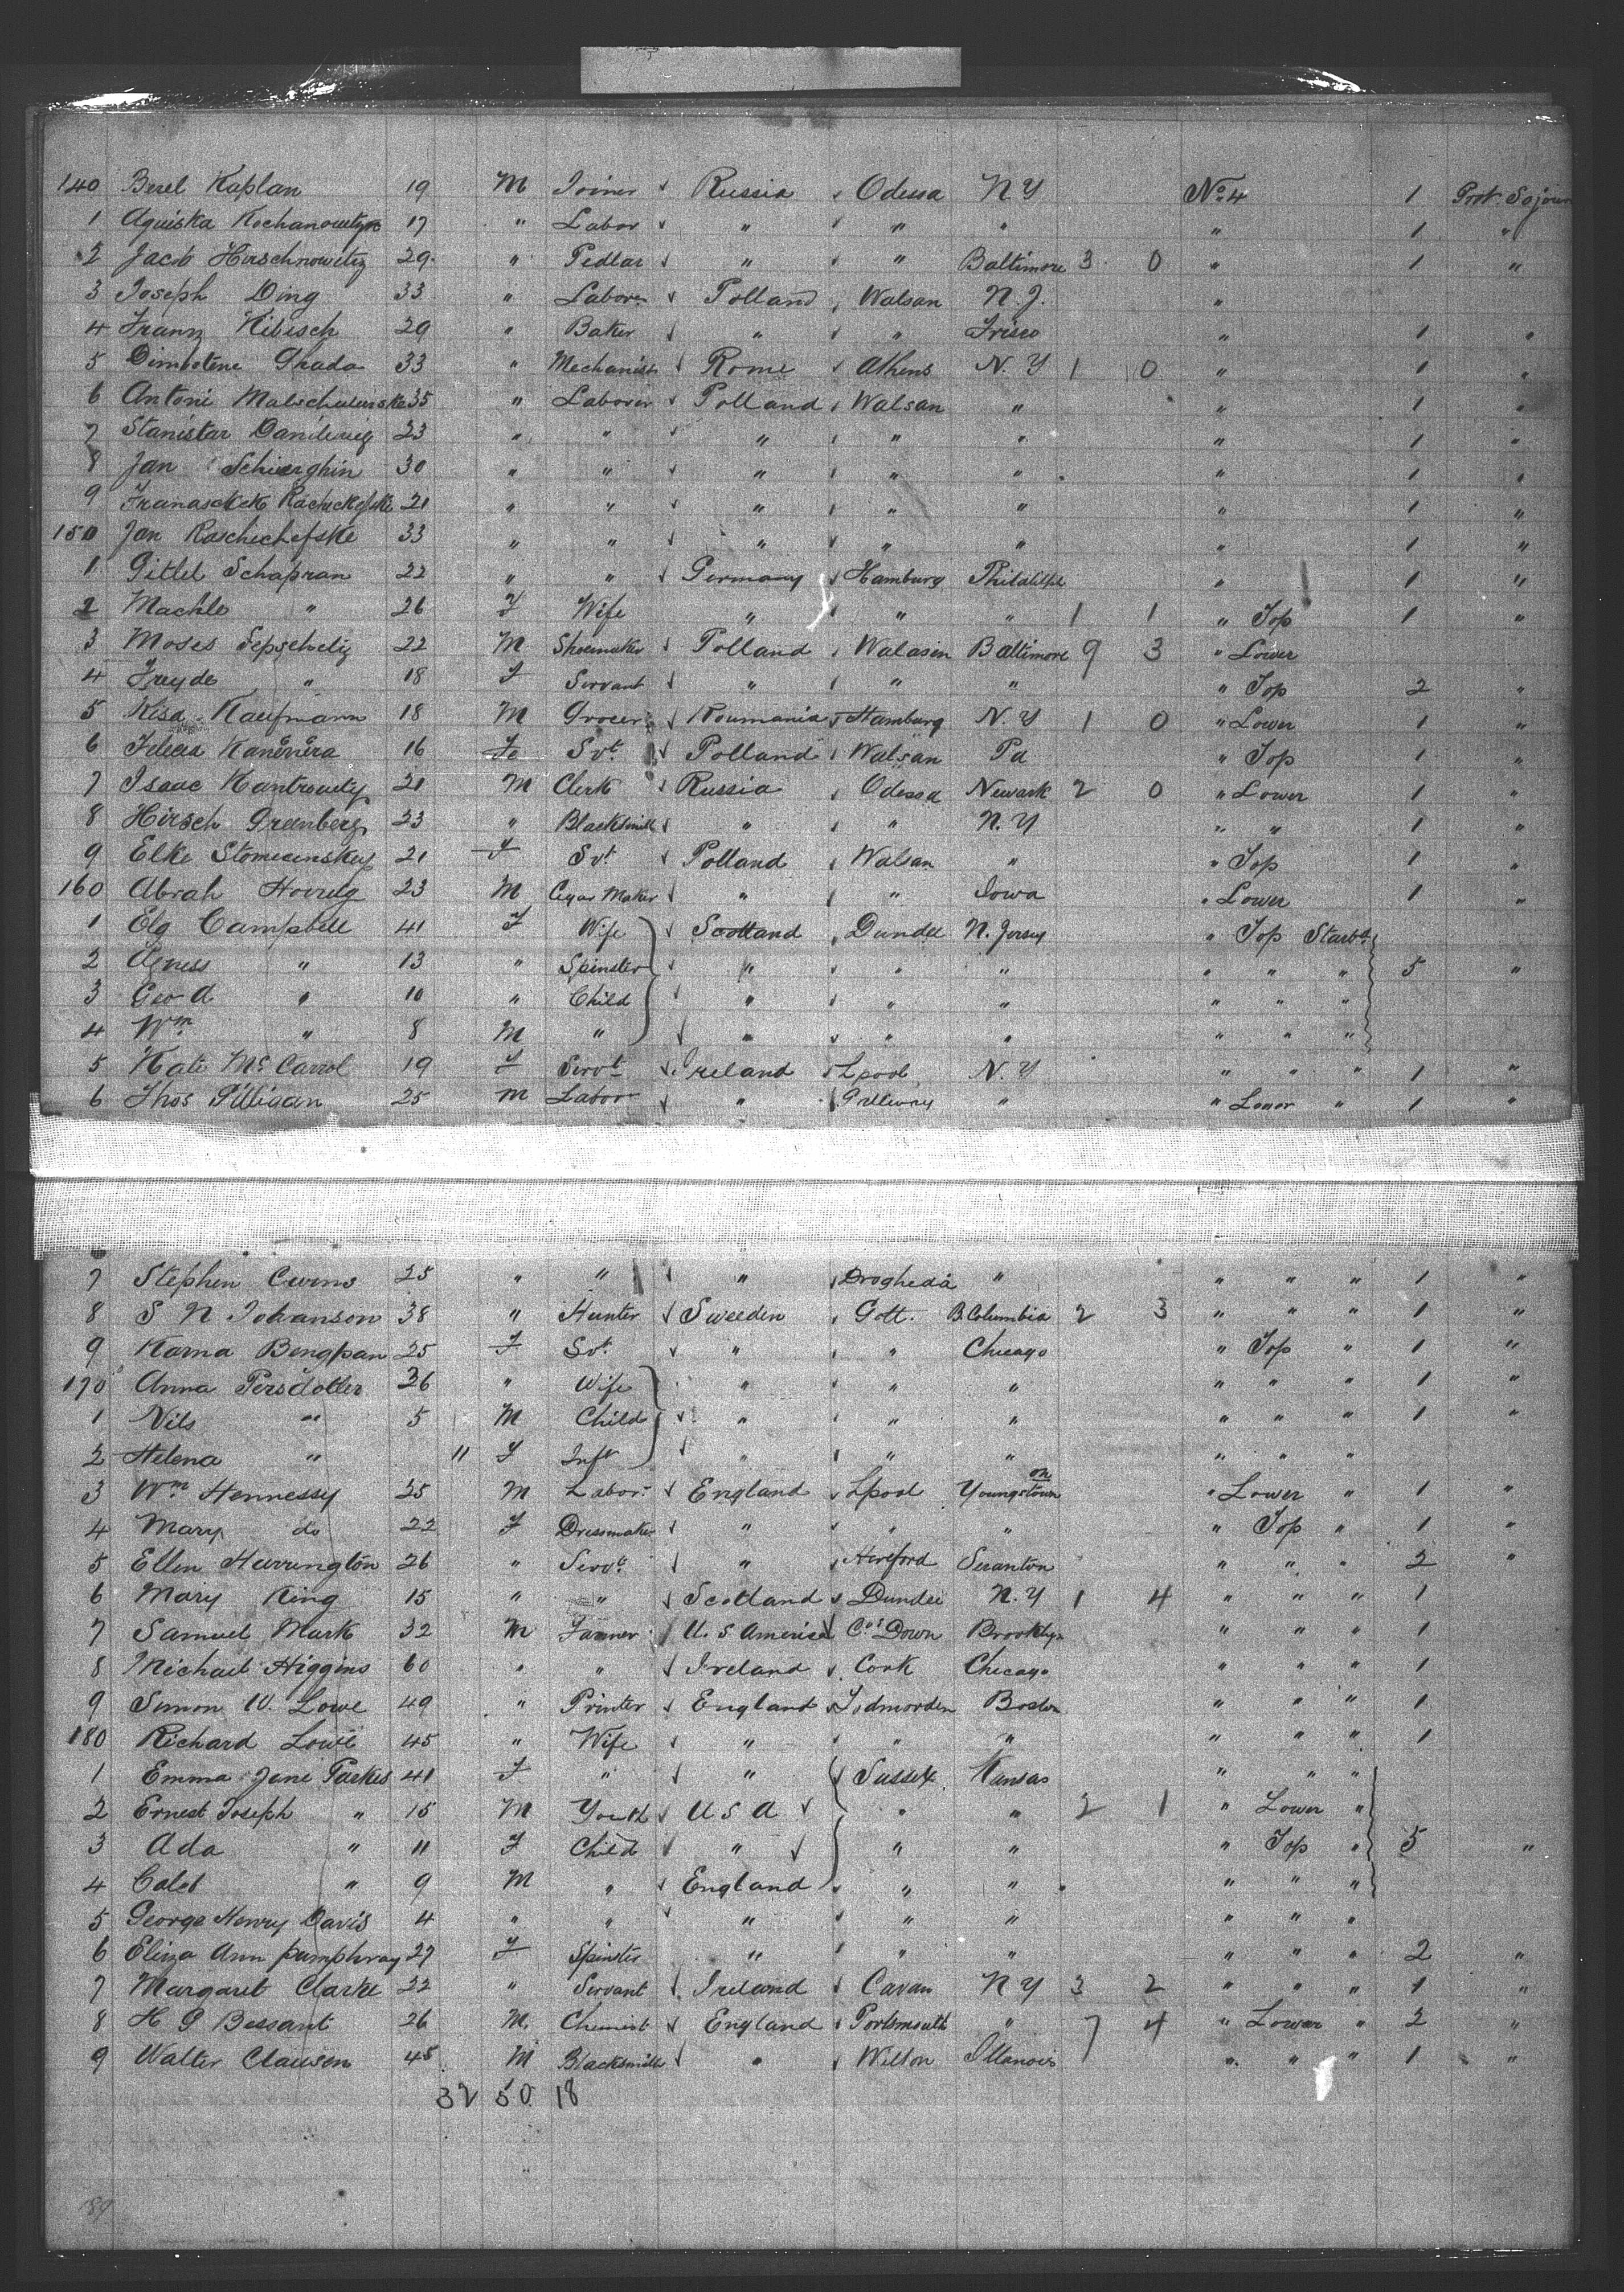 140 Berel Kaplan 19 M Joiner Russia Odessa N Y No 4 1 Prot. Sojourn
1 Aguiska 17 " Labor " " " " 1 "
2 Jacob Hirschnowitz 29 " Pedlar " " Baltimore 3 0 " 1 "
3 Joseph Ding 33 " Laborer Polland Walsan N. J. "
4 Franz Kibisch 29 " Baker " " Frisco " 1 "
5 Demostene Ghada 33 " Mechanist Rome Athens N. Y 1 0 " 1 "
6 Antoni 35 " Laborer Polland Walsan " " 1 "
7 Stanistar 23 " " " " " " 1 "
8 Jan Schierghin 30 " " " " " " 1 "
9 21 " " " " " " 1 "
150 Jan Raschichefske 33 " " " " " " 1 "
1 Gittel Schapran 22 " " Germany Hamburg Philadelph " 1 "
2 Machle " 26 F Wife " " " 1 1 " Top 1 "
3 Moses 22 M Shoemaker Polland Walasin Baltimore 9 3 " Lower
4 Freyde " 18 F Servant " " " " Top 2 "
5 Kisa Kaufmann 18 M Grocer Roumania Hamburg N. Y 1 0 " Lower 1 "
6 16 Fe Svt. Polland Walsan Pa " Top 1 "
7 Isaac Kantrowitz 21 M Clerk Russia Odessa Newark 2 0 " Lower 1 "
8 Hirsch Greenberg 23 " Blacksmith " " N. Y " " 1 "
9 Elke 21 F Svt Polland Walsan " " Top 1 "
160 Abrah 23 M Cigar Maker " " Iowa " Lower 1 "
1 Elg Campbell 41 F Wife Scotland Dundee N. Jersey " Top Starbd
2 Agness " 13 " Spinster " " " " " " 5 "
3 Geo A " 10 " Child " " " " " "
4 Wm " 8 M " " " " " " "
5 Kate McCarrol 19 F Servt Ireland Lpool N. Y " " " 1 "
6 Thos Gilligan 25 M Labor " " " Lower " 1 "
7 Stephen Curns 25 " " " Drogheda " " " " 1 "
8 S N Johanson 38 " Hunter Sweeden Gott. B. Columbia 2 3 " " " 1 "
9 Karna Bengpan 25 F Svt. " " Chicago " Top " 1 "
170 Anna Persdotter 36 " Wife " " " " " " 1 "
1 Nils " 5 M Child " " " " " " 1 "
2 Helena " 11 F Inft " " " " " "
3 Wm Hennessy 25 M Labor England Lpool Youngstown oh " Lower " 1 "
4 Mary do 22 F Dressmaker " " " " Top " 1 "
5 Ellen Harrington 26 " Servt " Hereford Scranton " " " 2 "
6 Mary King 15 " " Scotland Dundee N. Y 1 4 " " " 1
7 Samuel Mark 32 M Farmer U. S America Co. Down Brooklyn " " " 1
8 Michael Higgins 60 " " Ireland Cork Chicago " " " 1
9 Simon W. Lowe 49 " Printer England Todmorden Boston " " " 1
180 Richard Lowe 45 " Wife " " " " " " 1
1 Emma Jane Parkes 41 F " " Sussex Kansas " " "
2 Ernest Joseph " 15 M Youth U S A " " 2 1 " Lower "
3 Ada " 11 F Child " " " " Top " 5 "
4 Caleb " 9 M " England " " " " "
5 George Henry Davis 4 " " " " " " " "
6 Eliza Ann pumphray 27 F Spinster " " " " " " 2 "
7 Margaret Clarke 22 " Servant Ireland Cavan N Y 3 2 " " " 1 "
8 H G Bessant 26 M. Chemist England Portsmouth " 7 4 " Lower " 2 "
9 Walter Clausen 45 M Blacksmith " Wilton Illanois " " " 1 "
32 50 18
189